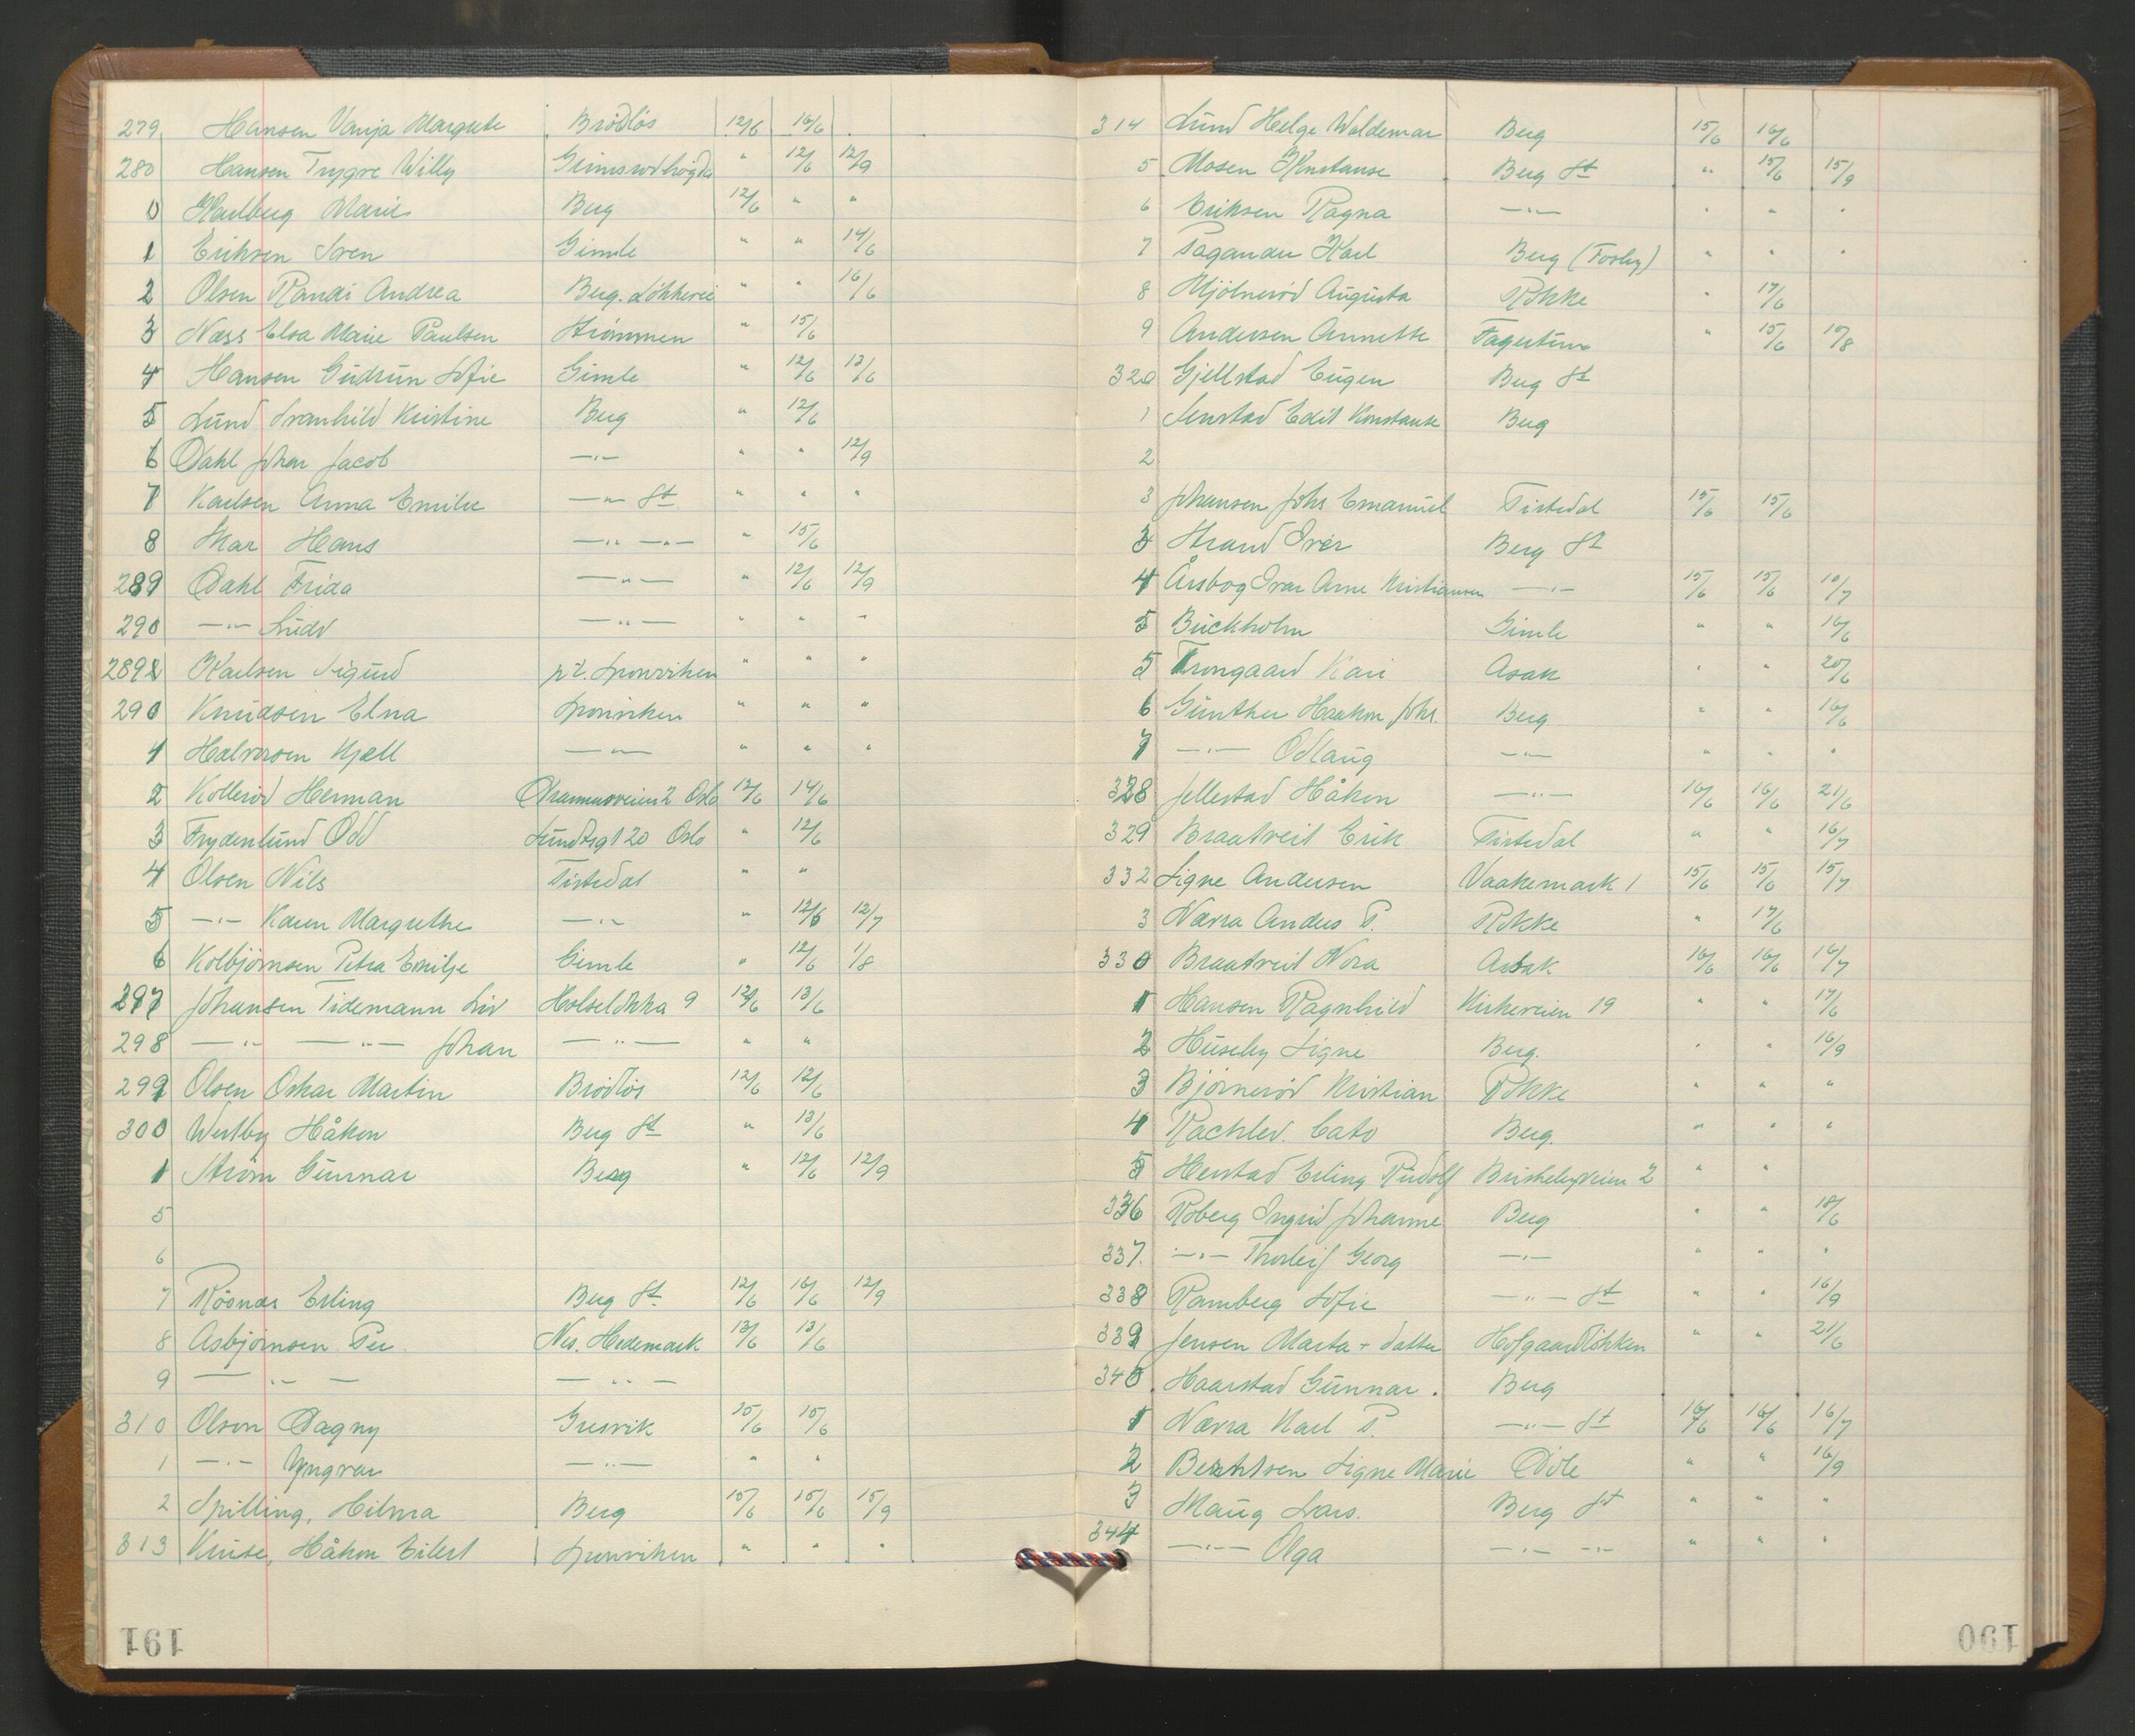 279 Hansen Vanja Margrete Brödlös 12/6 16/6
280 Hansen Trygve Willy Grimsrødhøgda " 12/6 12/9
0 Karlberg Marie Berg 12/6 " "
1 Eriksen Sven Gimle " " 14/6
2 Olsen Randi Andrea Berg. Løkkevei " " 16/6
3 Næss Elsa Marie Paulsen Strömmen " 15/6
4 Hansen Gudrun Sofie Gimle " 12/6 13/6
5 Lund Svanhild Kristine Berg " 12/6
6 Dahl Johan Jacob —"— " " 12/9
7 Karlsen Anna Emilie —"— St " " "
8 Skar Hans —"— —"— " 15/6
289 Dahl Frida —"— " 12/6 12/9
290 —"— Ludv —"— " " "
289 Karlsen Sigurd pr. Sponviken " " "
290 Knudsen Elna Sponviken " " "
1 Halvorsen Kjell —"— " " "
2 Kollerød Herman Drammensveien 2 Oslo 12/6 14/6
3 Frydenlund Odd 120 Oslo " 12/6
4 Olsen Nils Tistedal " "
5 —"— Karen Margrethe —"— " 12/6 12/7
6 Kolbjörnsen Petra Emilje Gimle " 12/6 1/8
297 Johansen Tidemann Liv Holsløkka 9 12/6 13/6
298 —"— —"— Johan —"— " "
299 Olsen Oskar Martin Brödlös 12/6 12/6
300 Westby Håkon Berg St " 13/6
1 Ström Gunnar Berg " 12/6 12/9
5
6
7 Rösnæs Erling Berg St. 12/6 16/6 12/9
8 Asbjörnsen Per Nes. Hedemark 13/6 13/6
9 —"— —"—
310 Olsen Dagny Gresvik 15/6 15/6
1 —"— Yngvar —"— " "
2 Spilling, Hilma Berg 15/6 15/6 15/9
313 Kruse, Håkon Eilert Sponviken " " "
191
314 Lund Helge Waldemar Berg 15/6 16/6
5 Mosen Konstanse Berg St " 15/6 15/9
6 Eriksen Ragna —"— " " "
7 Karl Berg (Torby) " " "
8 Mjölneröd Augusta Rokke " 17/6
9 Andersen Annette Fagertun " 15/6 15/8
320 Gjellstad Eugen Berg St
1 Jenstad Edit Konstanse Berg
2
3 Johansen Johs Emanuel Tistedal 15/6 15/6
3 Strand Iver Berg St
4 Årsbog Ivar Arne Kristiansen —"— 15/6 15/6 10/7
5 Buckholm Gimle " " 16/6
5 Trongaard Kari Asak " " 20/6
6 Günther Haakon Johs. Berg " " 16/6
7 —"— Odlaug —"— " " "
328 Jellestad Håkon —"— 16/6 16/6 21/6
329 Braatveit Erik Tistedal " " 16/7
332 Signe Andersen Vaakemark 1 15/6 15/6 15/7
3 Nævra Anders P. Rokke " 17/6
330 Braatveit Nora Asak 16/6 16/6 16/7
1 Hansen Ragnhild Kirkeveien 19 " " 17/6
2 Huseby Signe Berg. " " 16/9
3 Björneröd Kristian Rokke " " "
4 Rachlev. Cato Berg. " " "
5 Herstad Erling Rudolf Briskebyveien 2 " "
336 Roberg Ingrid Johanne Berg " " 18/6
337. —"— Thorleif Georg —"— " " "
338 Ramberg Sofie —"— St " " 16/9
339 Jensen Marta + datter Hofgaardløkken " " 21/6
340. Haarstad Gunnar. Berg
1 Nævra Karl P. —"— St 16/6 16/6 16/7
2 Berntsen Signe Marie Dole " " 16/9
3 Maug Lars. Berg St " " "
344 —"— Olga —"— —"— " " "
190